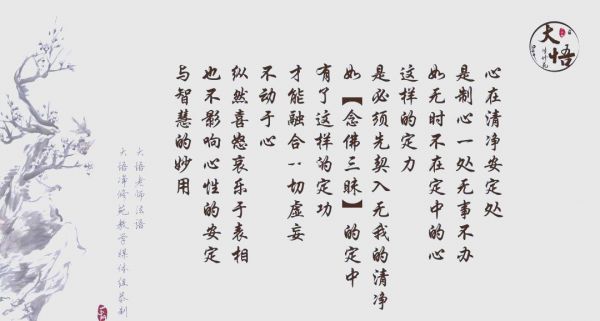 大悟
心在清净安定处
是制心一处无事不办
如无时不在定中的心
这样的定力
是必须先契入无我的清净
如【念佛三昧】的定中
有了这样的定功
才能融合一切虚妄
不动于心
纵然喜怒哀乐于表相
也不影响心性的安定
与智慧的妙用
大悟老师法语
大悟净修苑教学媒体组恭制